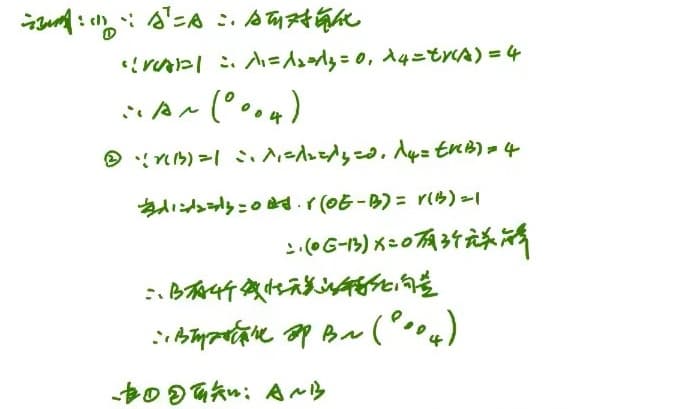 证明：(1) ① ∵ Aᵀ=A ∴ A可对角化
∵ r(A)=1 ∴ λ₁=λ₂=λ₃=0, λ₄=tr(A)=4
∴ A ~ (0 0 0 4)
② ∵ r(B)=1 ∴ λ₁=λ₂=λ₃=0, λ₄=tr(B)=4
当λ₁=λ₂=λ₃=0时. r(0E-B)=r(B)=1
∴ (0E-B)x=0有3个无关解
∴ B有4个线性无关的特征向量
∴ B可对角化 即 B ~ (0 0 0 4)
由①②可知: A~B